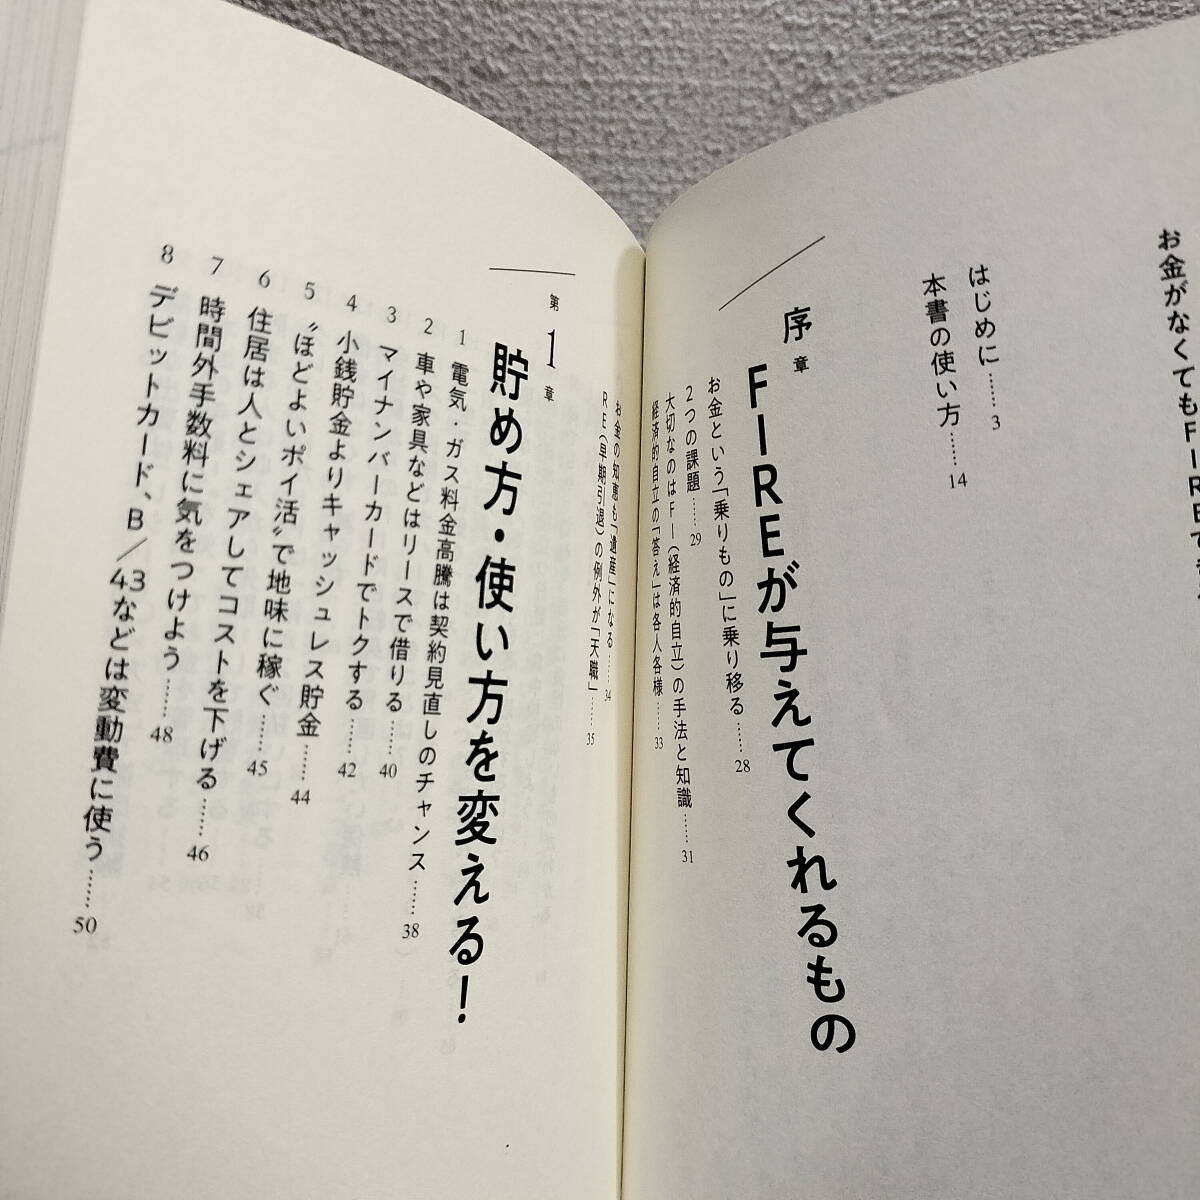 お金がなくてもFIREで
はじめに……3
本書の使い方……14
序章
FIREが与えてくれるもの
お金という「乗りもの」に乗り移る……28
2つの課題……29
大切なのはFI（経済的自立）の手法と知識……31
経済的自立の「答え」は各人各様……33
お金の知恵も「遺産」になる……34
RE（早期引退）の例外が「天職」……35
第1章
貯め方・使い方を変える！
1 電気・ガス料金高騰は契約見直しのチャンス……38
2 車や家具などはリースで借りる……40
3 マイナンバーカードでトクする……42
4 小銭貯金よりキャッシュレス貯金……44
5 〝ほどよいポイ活〟で地味に稼ぐ……45
6 住居は人とシェアしてコストを下げる……46
7 時間外手数料に気をつけよう……48
8 デビットカード、B／43などは変動費に使う……50